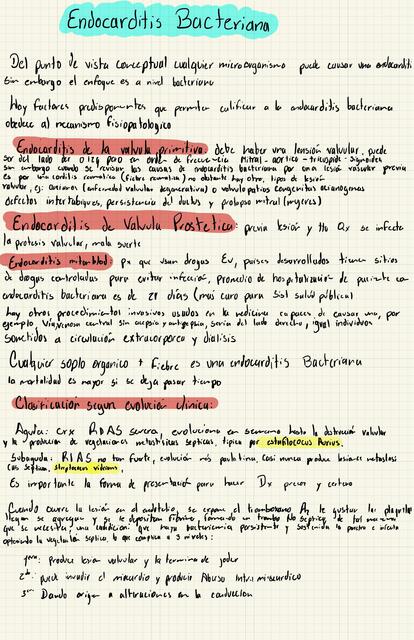 Endocarditis Bacteriana
Del punto de vista conceptual cualquier microorganismo puede causar una endocarditi
sin embargo el enfoque es a nivel bacteriano
Hay factores predisponentes que permiten calificar a la endocarditis bacteriana
obedece al mecanismo fisiopatologico
Endocarditis de la valvula primitiva: debe haber una lension valvular, puede
ser del lado der o izq pero en orden de frecuencia Mitral - aortica - tricuspide - sigmoidea
sin embargo cuando se revisan las causas de endocarditis bacteriana por una lesión valvular previa
es por una carditis reumatica (fiebre reumatica) no obstante hay otro tipos de lesión
valvular, ej: ancianos (enfermedad valvular degenerativa) o valvulopatias congenitas acianogenas
defectos intertabiques, persistencia del ductus y prolapso mitral (mujeres)
Endocarditis de Valvula Prostetica: previa lesión y tto Qx se infecta
la protesis valvular, mala suerte
Endocarditis: px que usan drogas Ev, paises desarrollados tienen sitios
de drogas controladas para evitar infección, promedio de hospitalización de paciente con
endocarditis bacteriana es de 28 dias (muy caro para sist salud público)
hay otros procedimientos invasivos usados en la medicina capaces de causar una, por
ejemplo Via venosa central sin asepsia y antisepsia, serian del lado derecho, igual individuos
sometidos a circulación extracorporea y dialisis
Cualquier soplo organico + fiebre es una endocarditis Bacteriana
la mortalidad es mayor si se deja pasar tiempo
Clasificación segun evolución clinica:
Aguda: severa, evoluciona en semanas hasta la distrucción valvular
y la producción de vegetaciones metastasicas septicas, tipica por estafilococus Aurius.
Subaguda: no tan fuerte, evolución más paulatina, casi nunca produce lesiones metastasi
cas septicas, streptococus viridans,
Es importante la forma de presentación para hacer Dx precoz y certero
Cuando ocurre la lesión en el endotelio, se expone el le gustan las plaquetas
llegan se agregan y se le depositan fibrina, formando un trombo No septico, de tal manera
que se necesita una condición que haya bacteriemia persistente y sostenida lo puebla e infecta
la vegetación septica, lo que complica a 3 niveles:
1ero: Produce lesion valvular y la termina de joder
2do: puede invadir el miocardio y producir Absceso Intra miocardico
3ro: Dando origen a alteraciones en la conducción